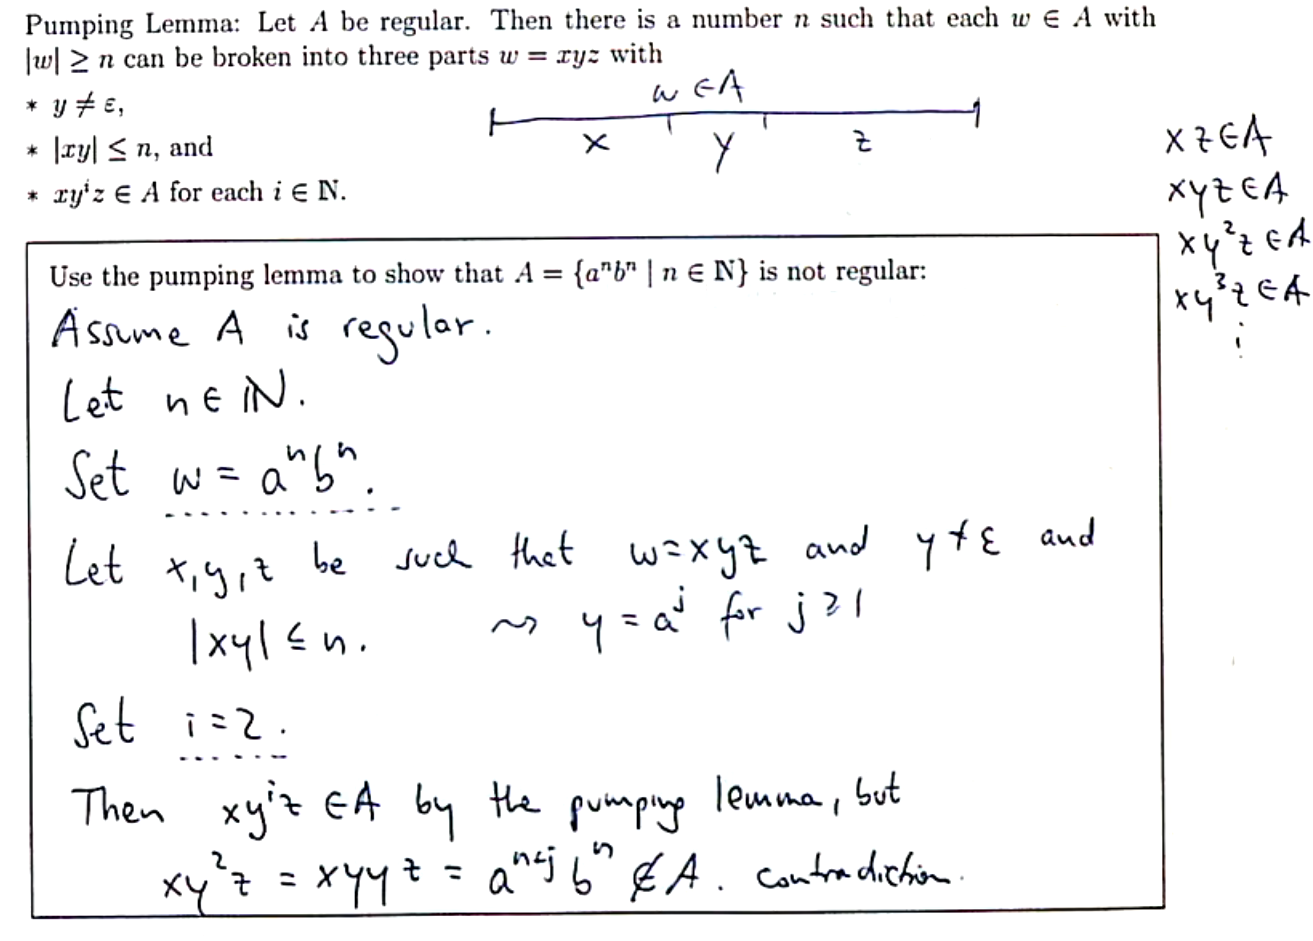 Pumping Lemma: Let A be regular. Then there is a number n such that each w ∈ A with
|w| ≥ n can be broken into three parts w = xyz with
* y ≠ ε,
* |xy| ≤ n, and
* xyⁱz ∈ A for each i ∈ ℕ.
w ∈ A
x y z
xz ∈ A
xyz ∈ A
xy²z ∈ A
xy³z ∈ A
⋮
Use the pumping lemma to show that A = {aⁿbⁿ | n ∈ ℕ} is not regular:
Assume A is regular.
Let n ∈ ℕ.
Set w = aⁿbⁿ.
Let x, y, z be such that w=xyz and y ≠ ε and
|xy| ≤ n. ⇝ y = aʲ for j ≥ 1
Set i = 2.
Then xyⁱz ∈ A by the pumping lemma, but
xy²z = xyyz = aⁿ⁺ʲbⁿ ∉ A. contradiction.